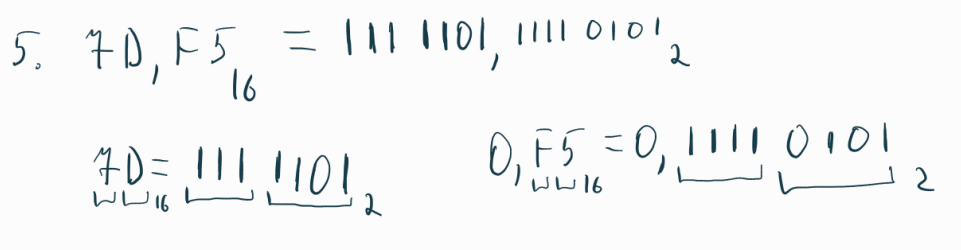 5. 7D,F5₁₆ = 111 1101,1111 0101₂
7D₁₆ = 111 1101₂ 0,F5₁₆ = 0,1111 0101₂